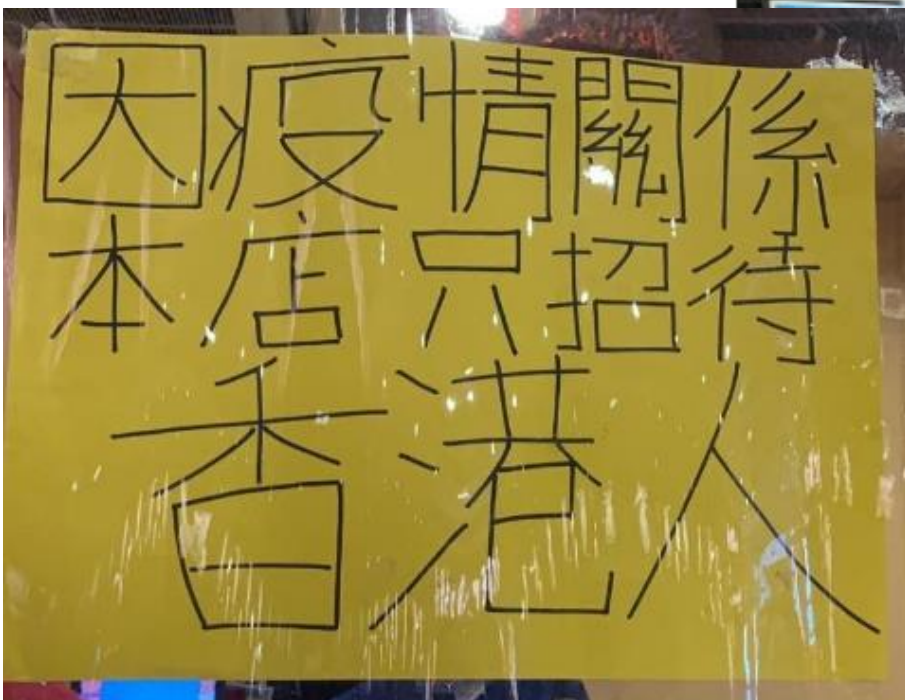 因疫情關係
本店只招待
香港人